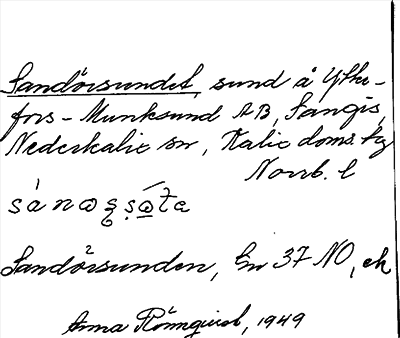 Sandörsundet, sund å Ytter-
fors-Munksund AB, Sangis,
Nederkalix sn, Kalix doms. tg
Norrb. l
Sandörsunden, En 37 NO, ek
Anna Rönnqvist, 1949